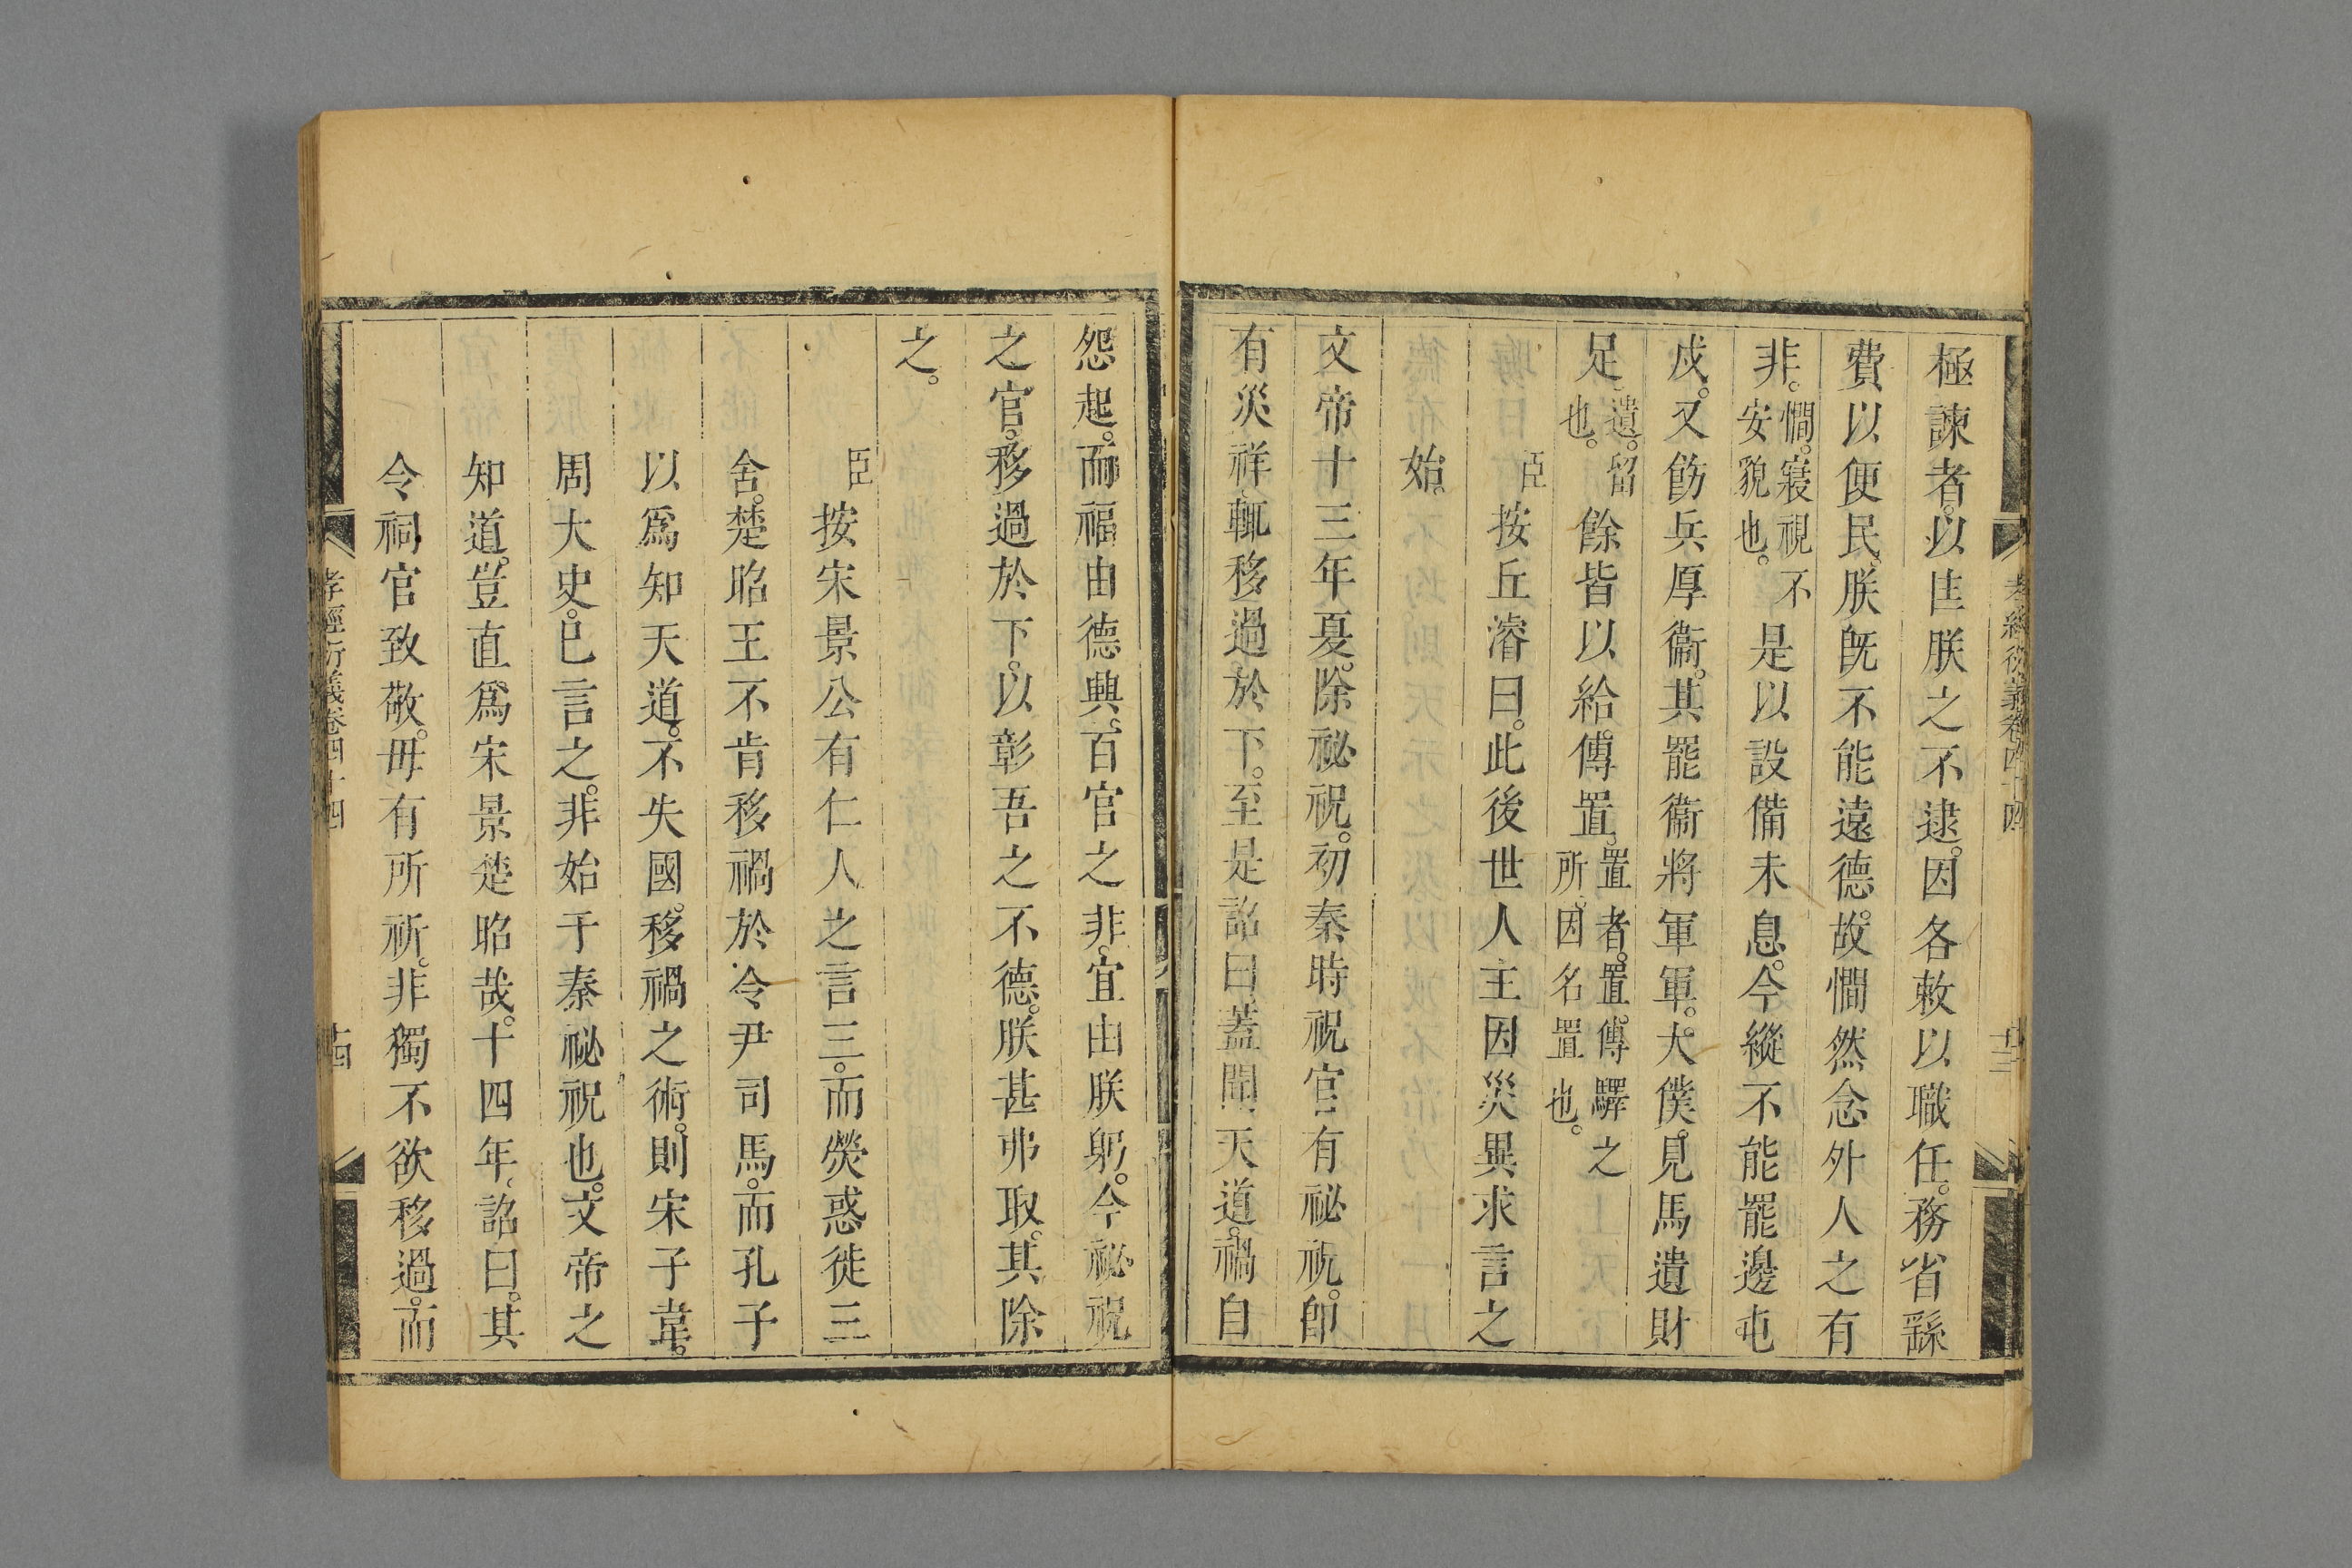 孝經衍義卷四十四
十三
極諫者。以匡朕之不逮。因各敕以職任。務省繇
費以便民。朕旣不能遠德。故憪然念外人之有
非。憪。寝視不安貌也。是以設備未息。今縱不能罷邊屯
戍。又飭兵厚衞。其罷衞將軍軍。大僕。見馬遺財
足。遺。留也。餘皆以給傳置。置者。置傳驛之所。因名置也。
臣按丘濬曰。此後世人主因災異求言之
始。
文帝十三年夏。除祕祝。初秦時祝官有祕祝。卽
有災祥。輒移過於下。至是詔曰。蓋聞天道。禍自
怨起。而福由德興。百官之非。宜由朕躬。今祕祝
之官。移過於下。以彰吾之不德。朕甚弗取。其除
之。
臣按宋景公有仁人之言三。而熒惑徙三
舍。楚昭王不肯移禍於令尹司馬。而孔子
以爲知天道。不失國。移禍之術。則宋子韋。
周大史。已言之。非始于秦祕祝也。文帝之
知道。豈直爲宋景楚昭哉。十四年。詔曰。其
令祠官致敬。毋有所祈。非獨不欲移過。而
孝經衍義卷四十四
十四